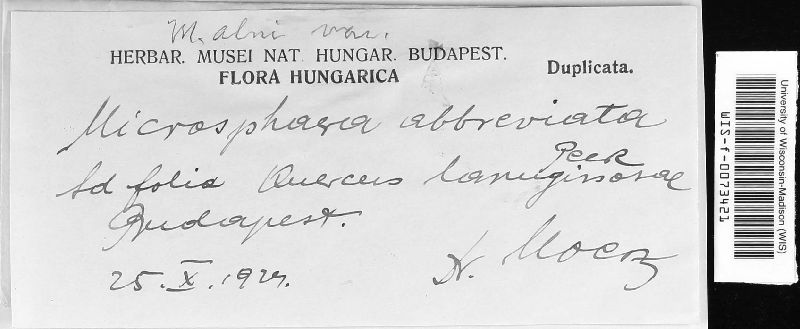 M. alni var.
HERBAR. MUSEI NAT. HUNGAR. BUDAPEST.
FLORA HUNGARICA
Duplicata.
Microsphaera abbreviata
Peck
Ad folia Quercus lanuginosae
Budapest.
25. X. 1929.
Dr. Moesz
University of Wisconsin-Madison (WIS)
WIS-f-0073421